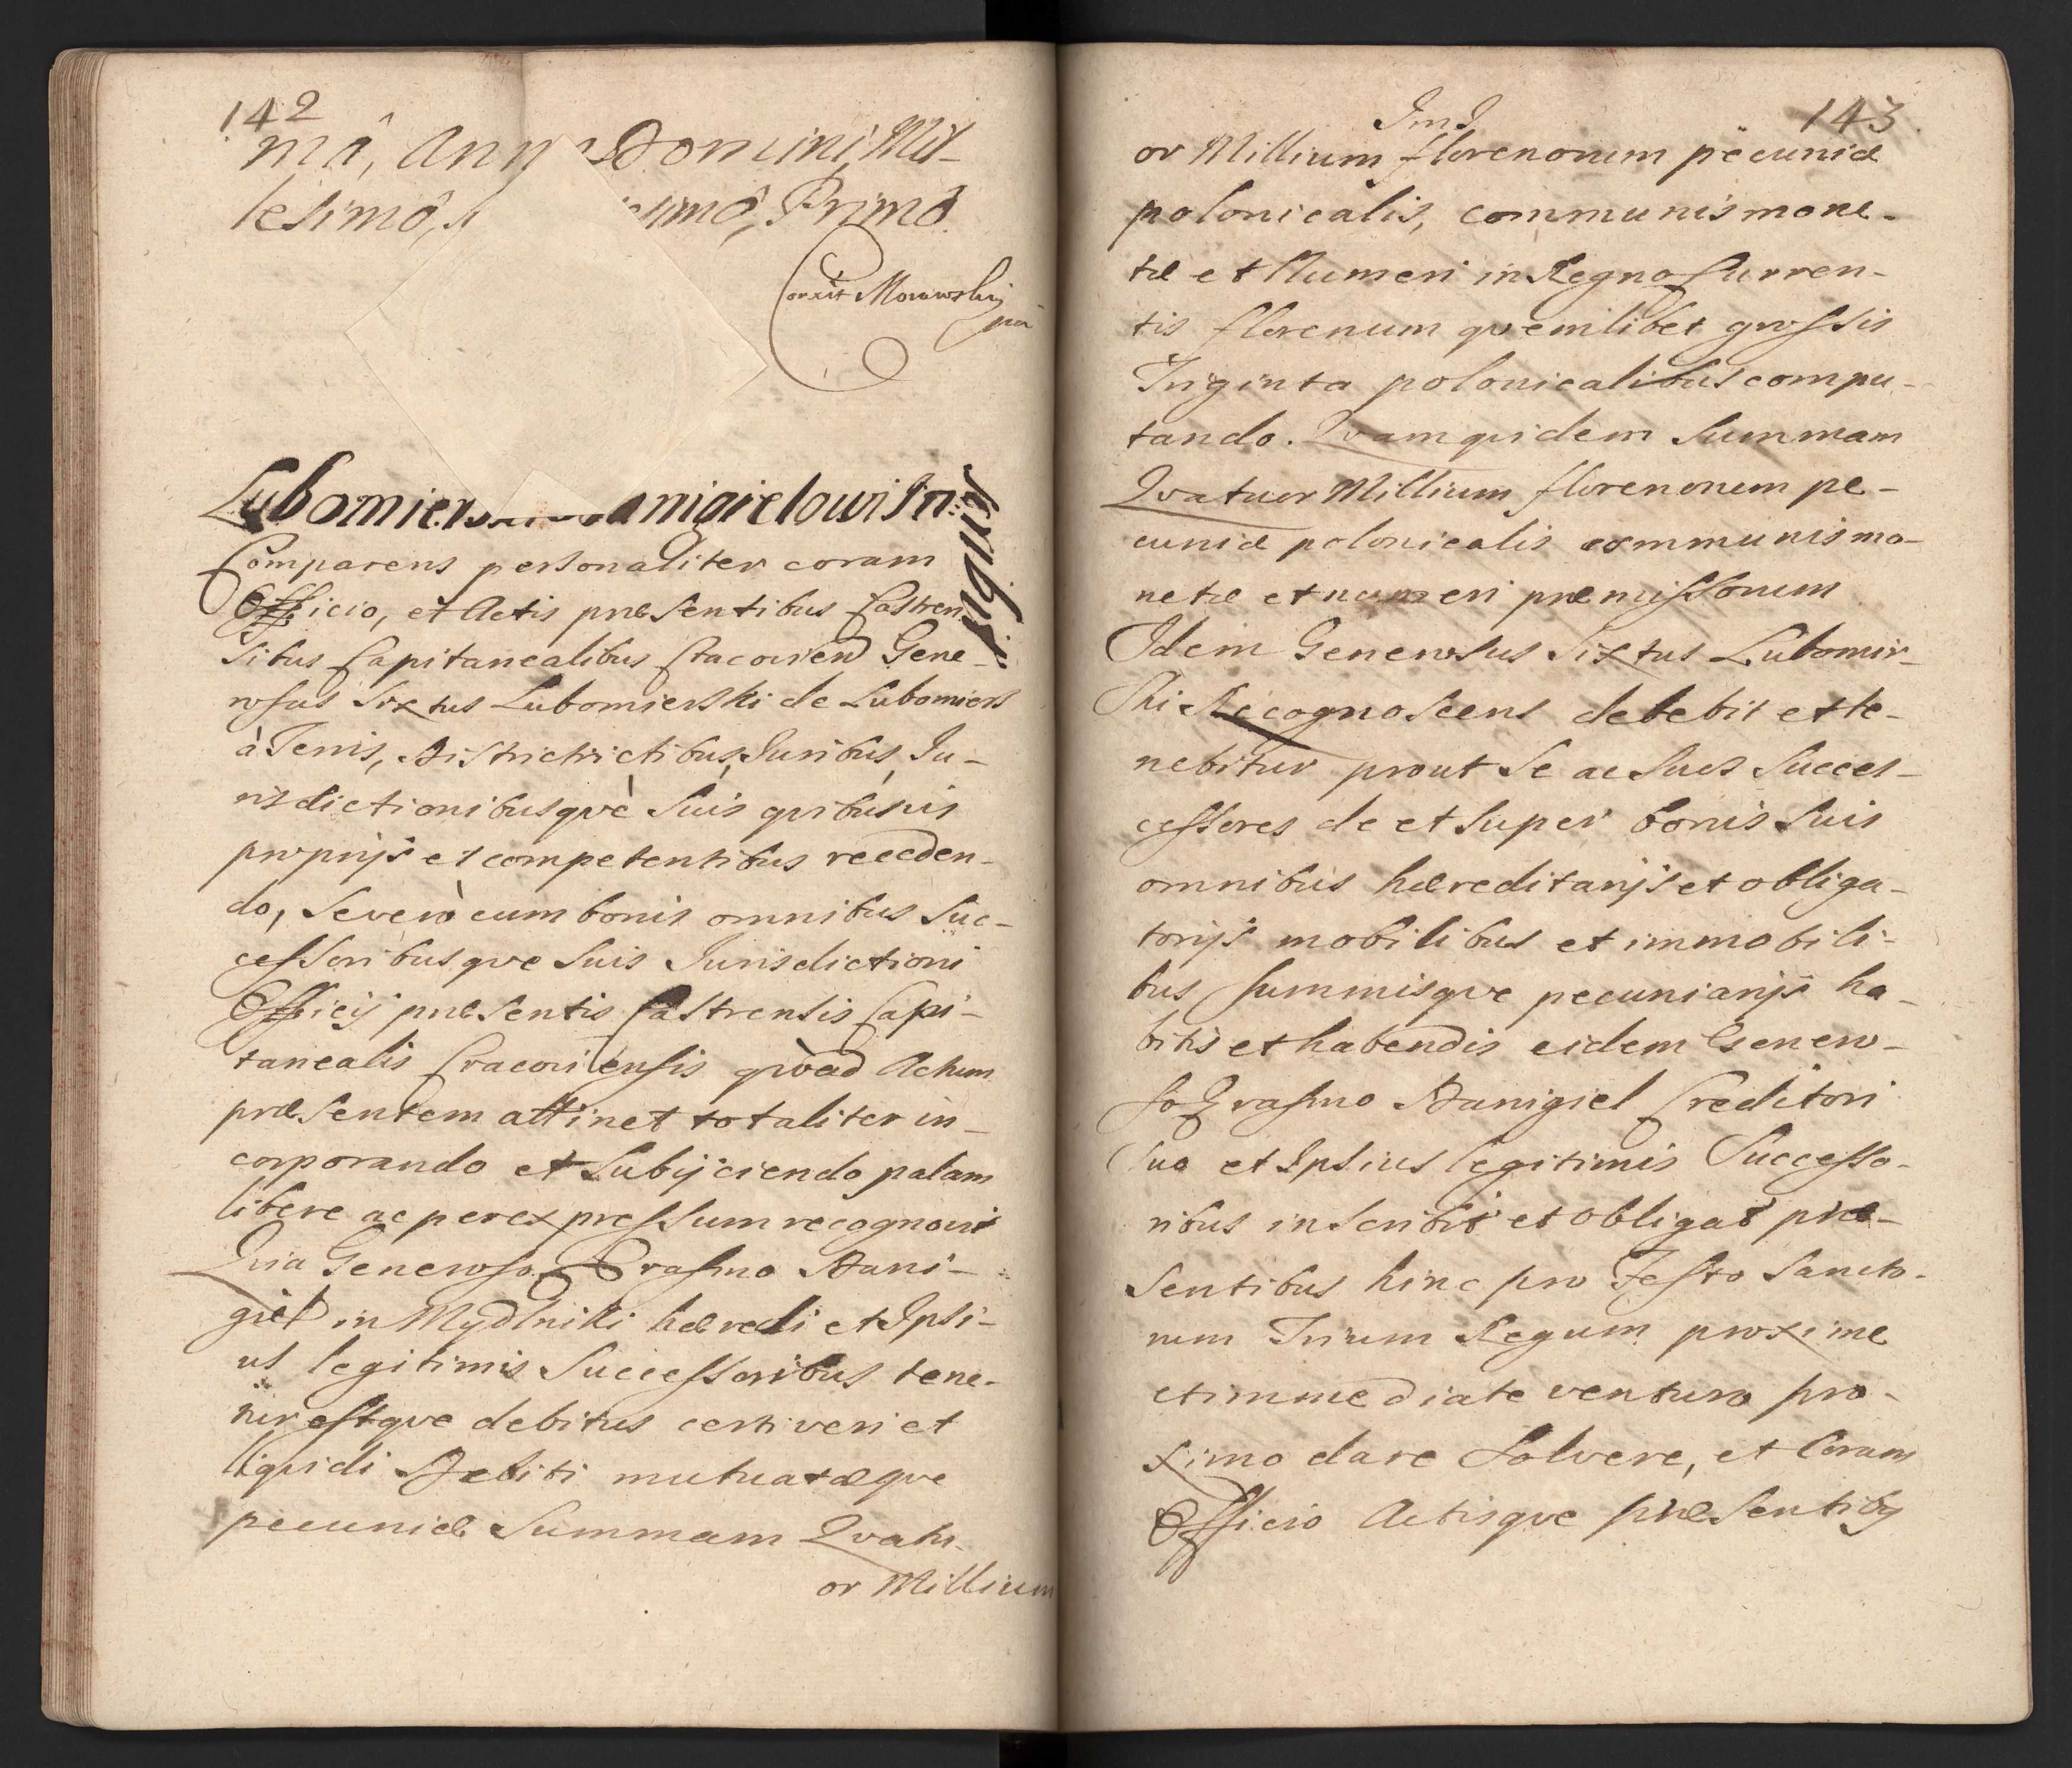 142
mâ, Anno Domini, Mil-
lesimô, simô, Primô.
Correxit Morawskij
mp
Lubomiers anigielowi Ins:
Comparens personaliter coram
Officio, et Actis præsentibus Castren
sibus Capitanealibus Cracovien Gene-
rosus Sixtus Lubomierski de Lubomierz
à Terris, Districtrictibus, Juribus, Ju-
risdictionibusqvè Suis qvibusvis
proprijs et competentibus receden-
do, Se verò cum bonis omnibus Suc-
cessoribusqve Suis Jurisdictioni
Officij præsentis Castrensis Capi-
tanealis Cracoviensis qvoad Actum
præsentem attinet totaliter in-
corporando et Subijciendo palam
libere ac per expressum recognovit
Qvia Generoso Erasmo Dani-
giel in Mydlniki hæredi et Ipsi-
us legitimis Successoribus tene-
tur estqve debitus certi veri et
liqvidi Debiti mutuatæqve
pecuniæ Summam Qvatu-
or Millium
143
or Millium florenorum pecuniæ
polonicalis, communis mone-
tæ et Numeri in Regno Curren-
tis florenum qvemlibet grossis
Triginta polonicalibus compu-
tando. Qvam qvidem Summam
Qvatuor Millium florenorum pe-
cuniæ polonicalis communis mo-
netæ et numeri præmissorum
Idem Generosus Sixtus Lubomir-
ski Recognoscens debebit et te-
nebitur prout Se ac Suos Succes-
cessores de et Super bonis Suis
omnibus hæreditarijs et obliga-
torijs mobilibus et immobili-
bus Summisqve pecuniarijs ha-
bitis et habendis eidem Genero-
so Erasmo Danigiel Creditori
Suo et Ipsius legitimis Successo-
ribus inscribit et obligat præ-
sentibus hinc pro Festo Sancto-
rum Trium Regum proxime
et immediate venturo pro-
ximo dare Solvere, et Coram
Officio Actisqve præsentibus